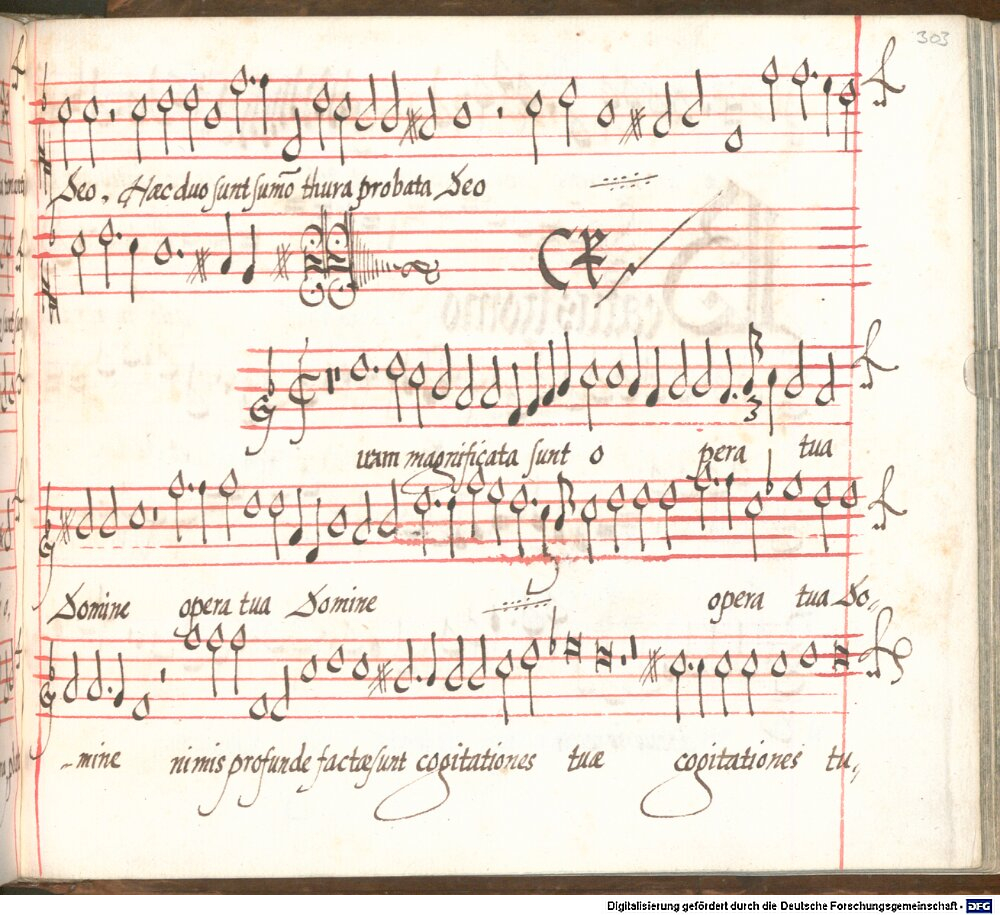 303
Deo, Hæc duo sunt sum̃o thura probata Deo
uam magnificata sunt o pera tua
Domine opera tua Domine opera tua Do-
-mine nimis profunde factæ sunt cogitationes tuæ cogitationes tu-
Digitalisierung gefördert durch die Deutsche Forschungsgemeinschaft - DFG